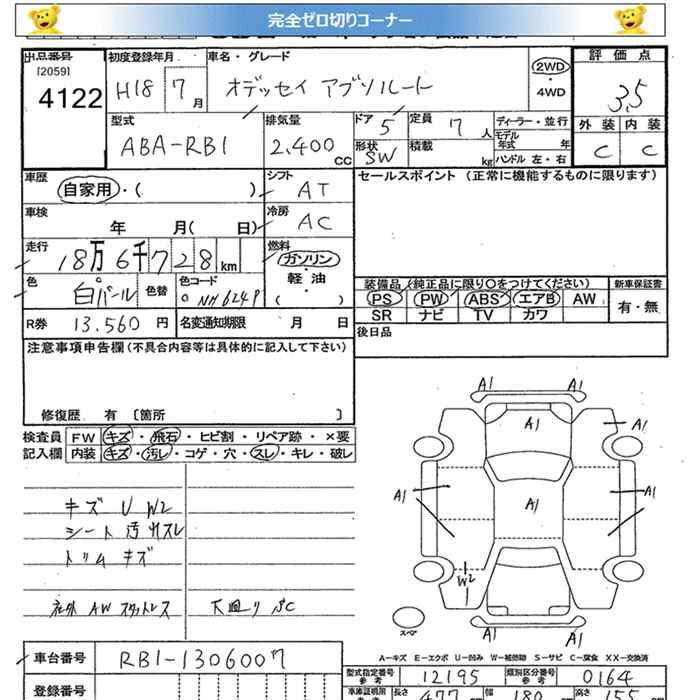 完全ゼロ切りコーナー
出品番号 初度登録年月 車名・グレード 評価点
[2059]
4122 H18 7月 オデッセイ アブソルート 2WD・4WD 3.5
型式 排気量 ドア 定員 ディーラー・並行 外装 内装
ABA-RB1 2,400cc 5 7人 モデル年式 年 C C
形状 SW 積載 kg ハンドル 左・右
車歴 シフト セールスポイント (正常に機能するものに限ります)
自家用・( ) AT
車検 冷房
年 月( 日) AC
走行 燃料
18万6千728km ガソリン・軽油
( )
色 色替 色コード 装備品 (純正品に限り○をつけてください) 新車保証書
白パール NH624P PS PW ABS エアB AW 有・無
SR ナビ TV カワ
R券 13,560円 名変通知期限 月 日 後日品
注意事項申告欄(不具合内容等は具体的に記入して下さい)
修復歴 有 〔箇所 〕
検査員 FW キズ・飛石・ヒビ割・リペア跡・×要
記入欄 内装 キズ・汚レ・コゲ・穴・スレ・キレ・破レ
キズ U W2
シート 汚レスレ
トリム キズ
社外 AW スタットレス 大廻り PC
A1 A1
A1 A1
A1 A1 A1
W2
A1 A1
スペア
A-キズ E-エクボ U-凹み W-補修跡 S-サビ C-腐食 XX-交換済
車台番号 RB1-1306007
型式指定番号 参考 12195 類別区分番号 参考 0164
登録番号 車庫証明用 参考 長さ 477 幅 180 高さ 155